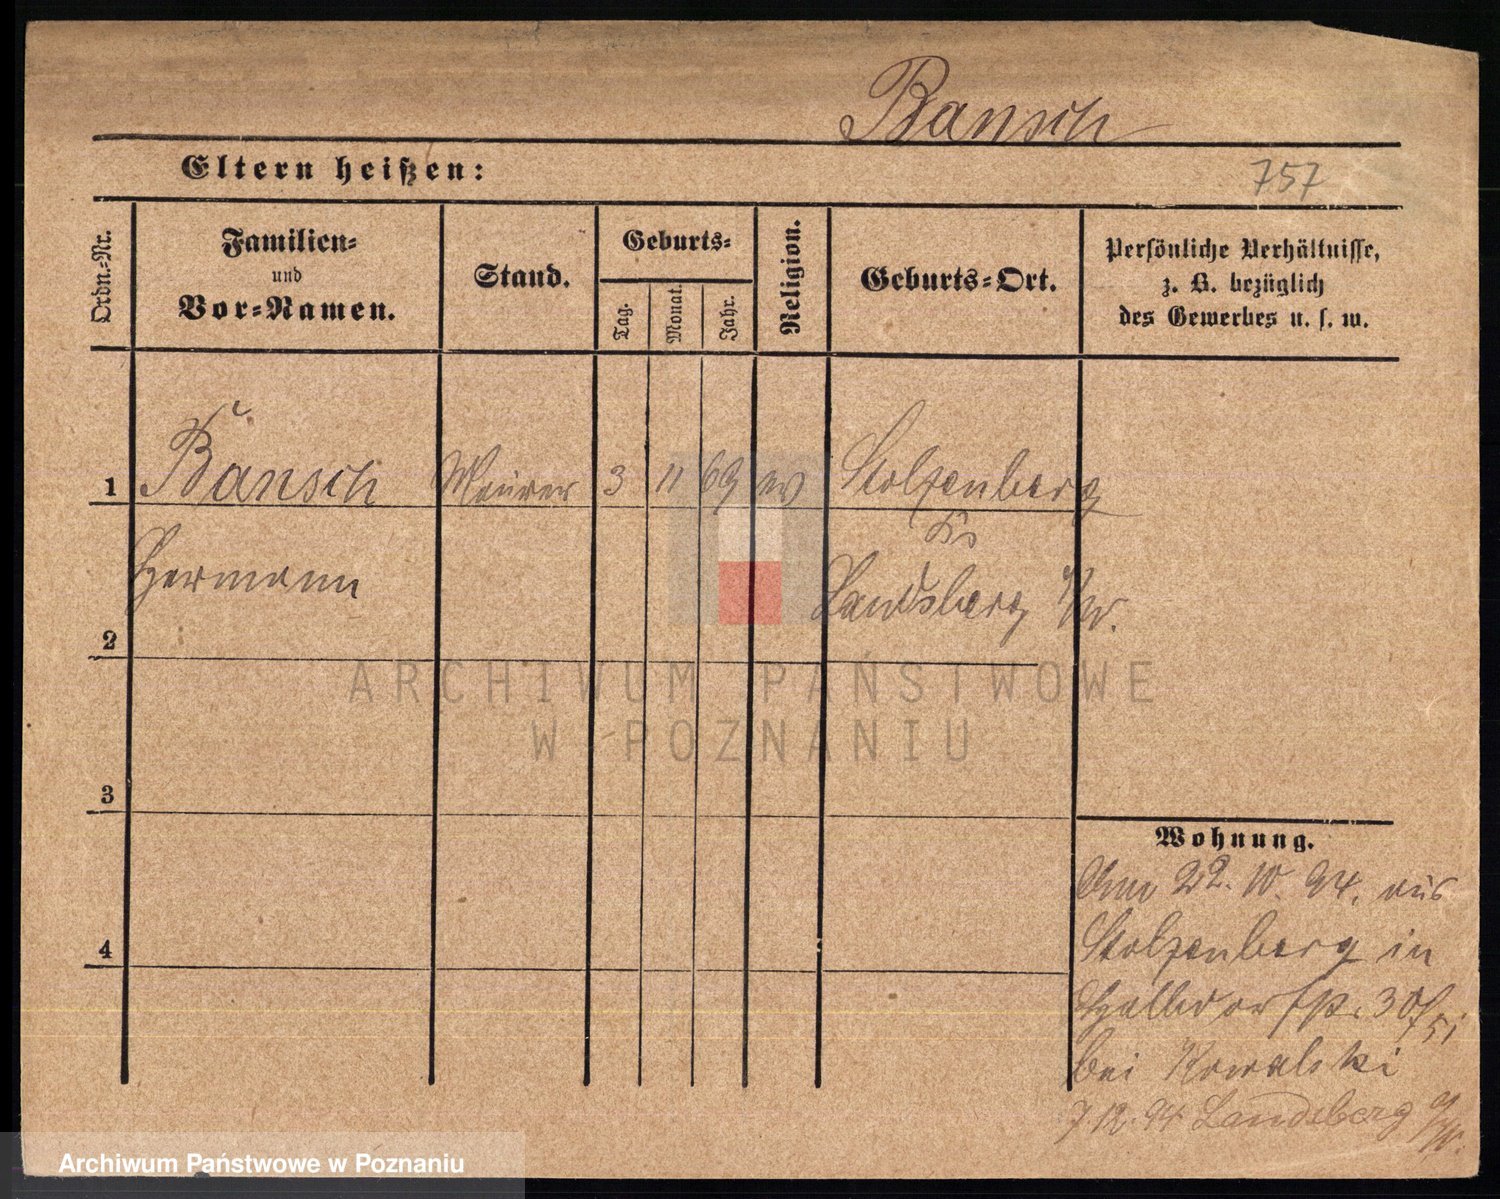 Bansch
Eltern heißen:
757
Ordn.-Nr.
Familien-
und
Vor-Namen.
Stand.
Geburts-
Tag.
Monat.
Jahr.
Religion.
Geburts-Ort.
Persönliche Verhältnisse,
z. B. bezüglich
des Gewerbes u. s. w.
1 Bansch Maurer 3 11 69 ev Stolzenberg
Hermann
Landsberg a/W.
2
3
4
Wohnung.
22. 10. 94. aus
Stolzenberg in
Halbdorfstr. 30
bei Kowalski
7 12. 94. Landsberg a/W.
ARCHIWUM PAŃSTWOWE
W POZNANIU
Archiwum Państwowe w Poznaniu